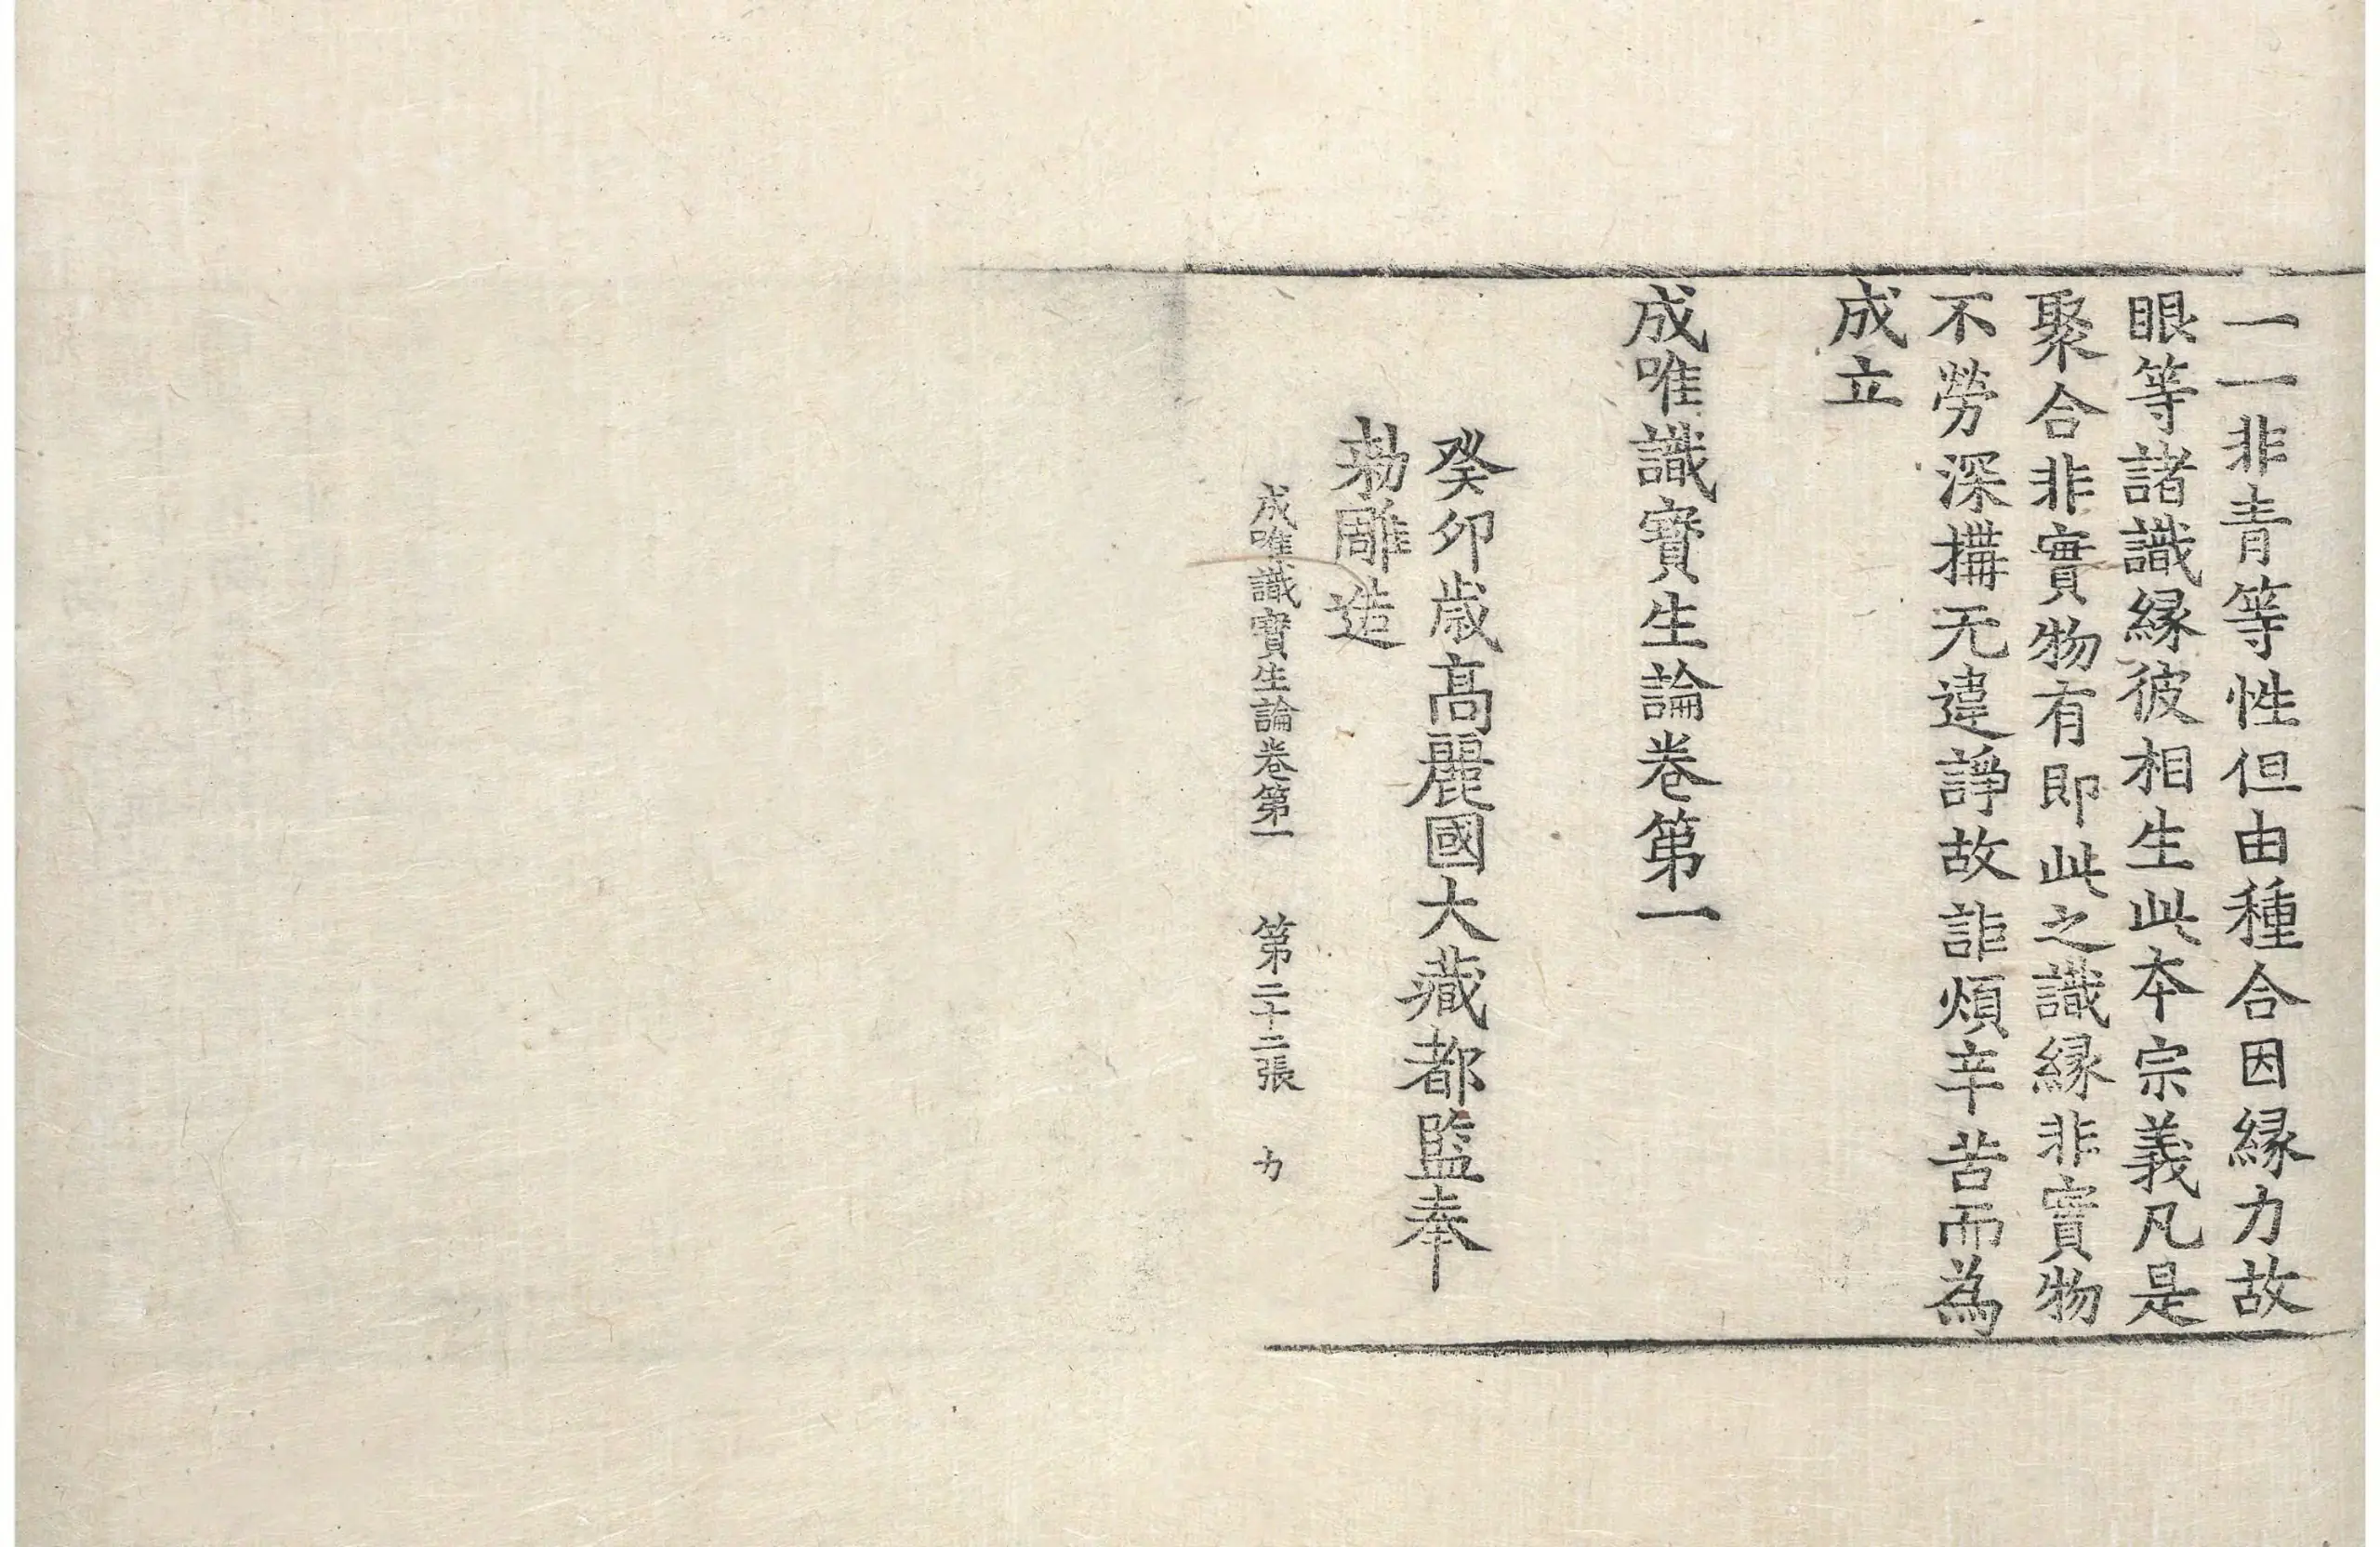 一一非青等性但由種合因縁力故
眼等諸識縁彼相生此本宗義凡是
聚合非實物有即此之識縁非實物
不勞深搆无違諍故詎煩辛苦而為
成立
成唯識寶生論卷第一
癸卯歳高麗國大藏都監奉
勑雕造
成唯識寶生論卷第一 第二十二張 力